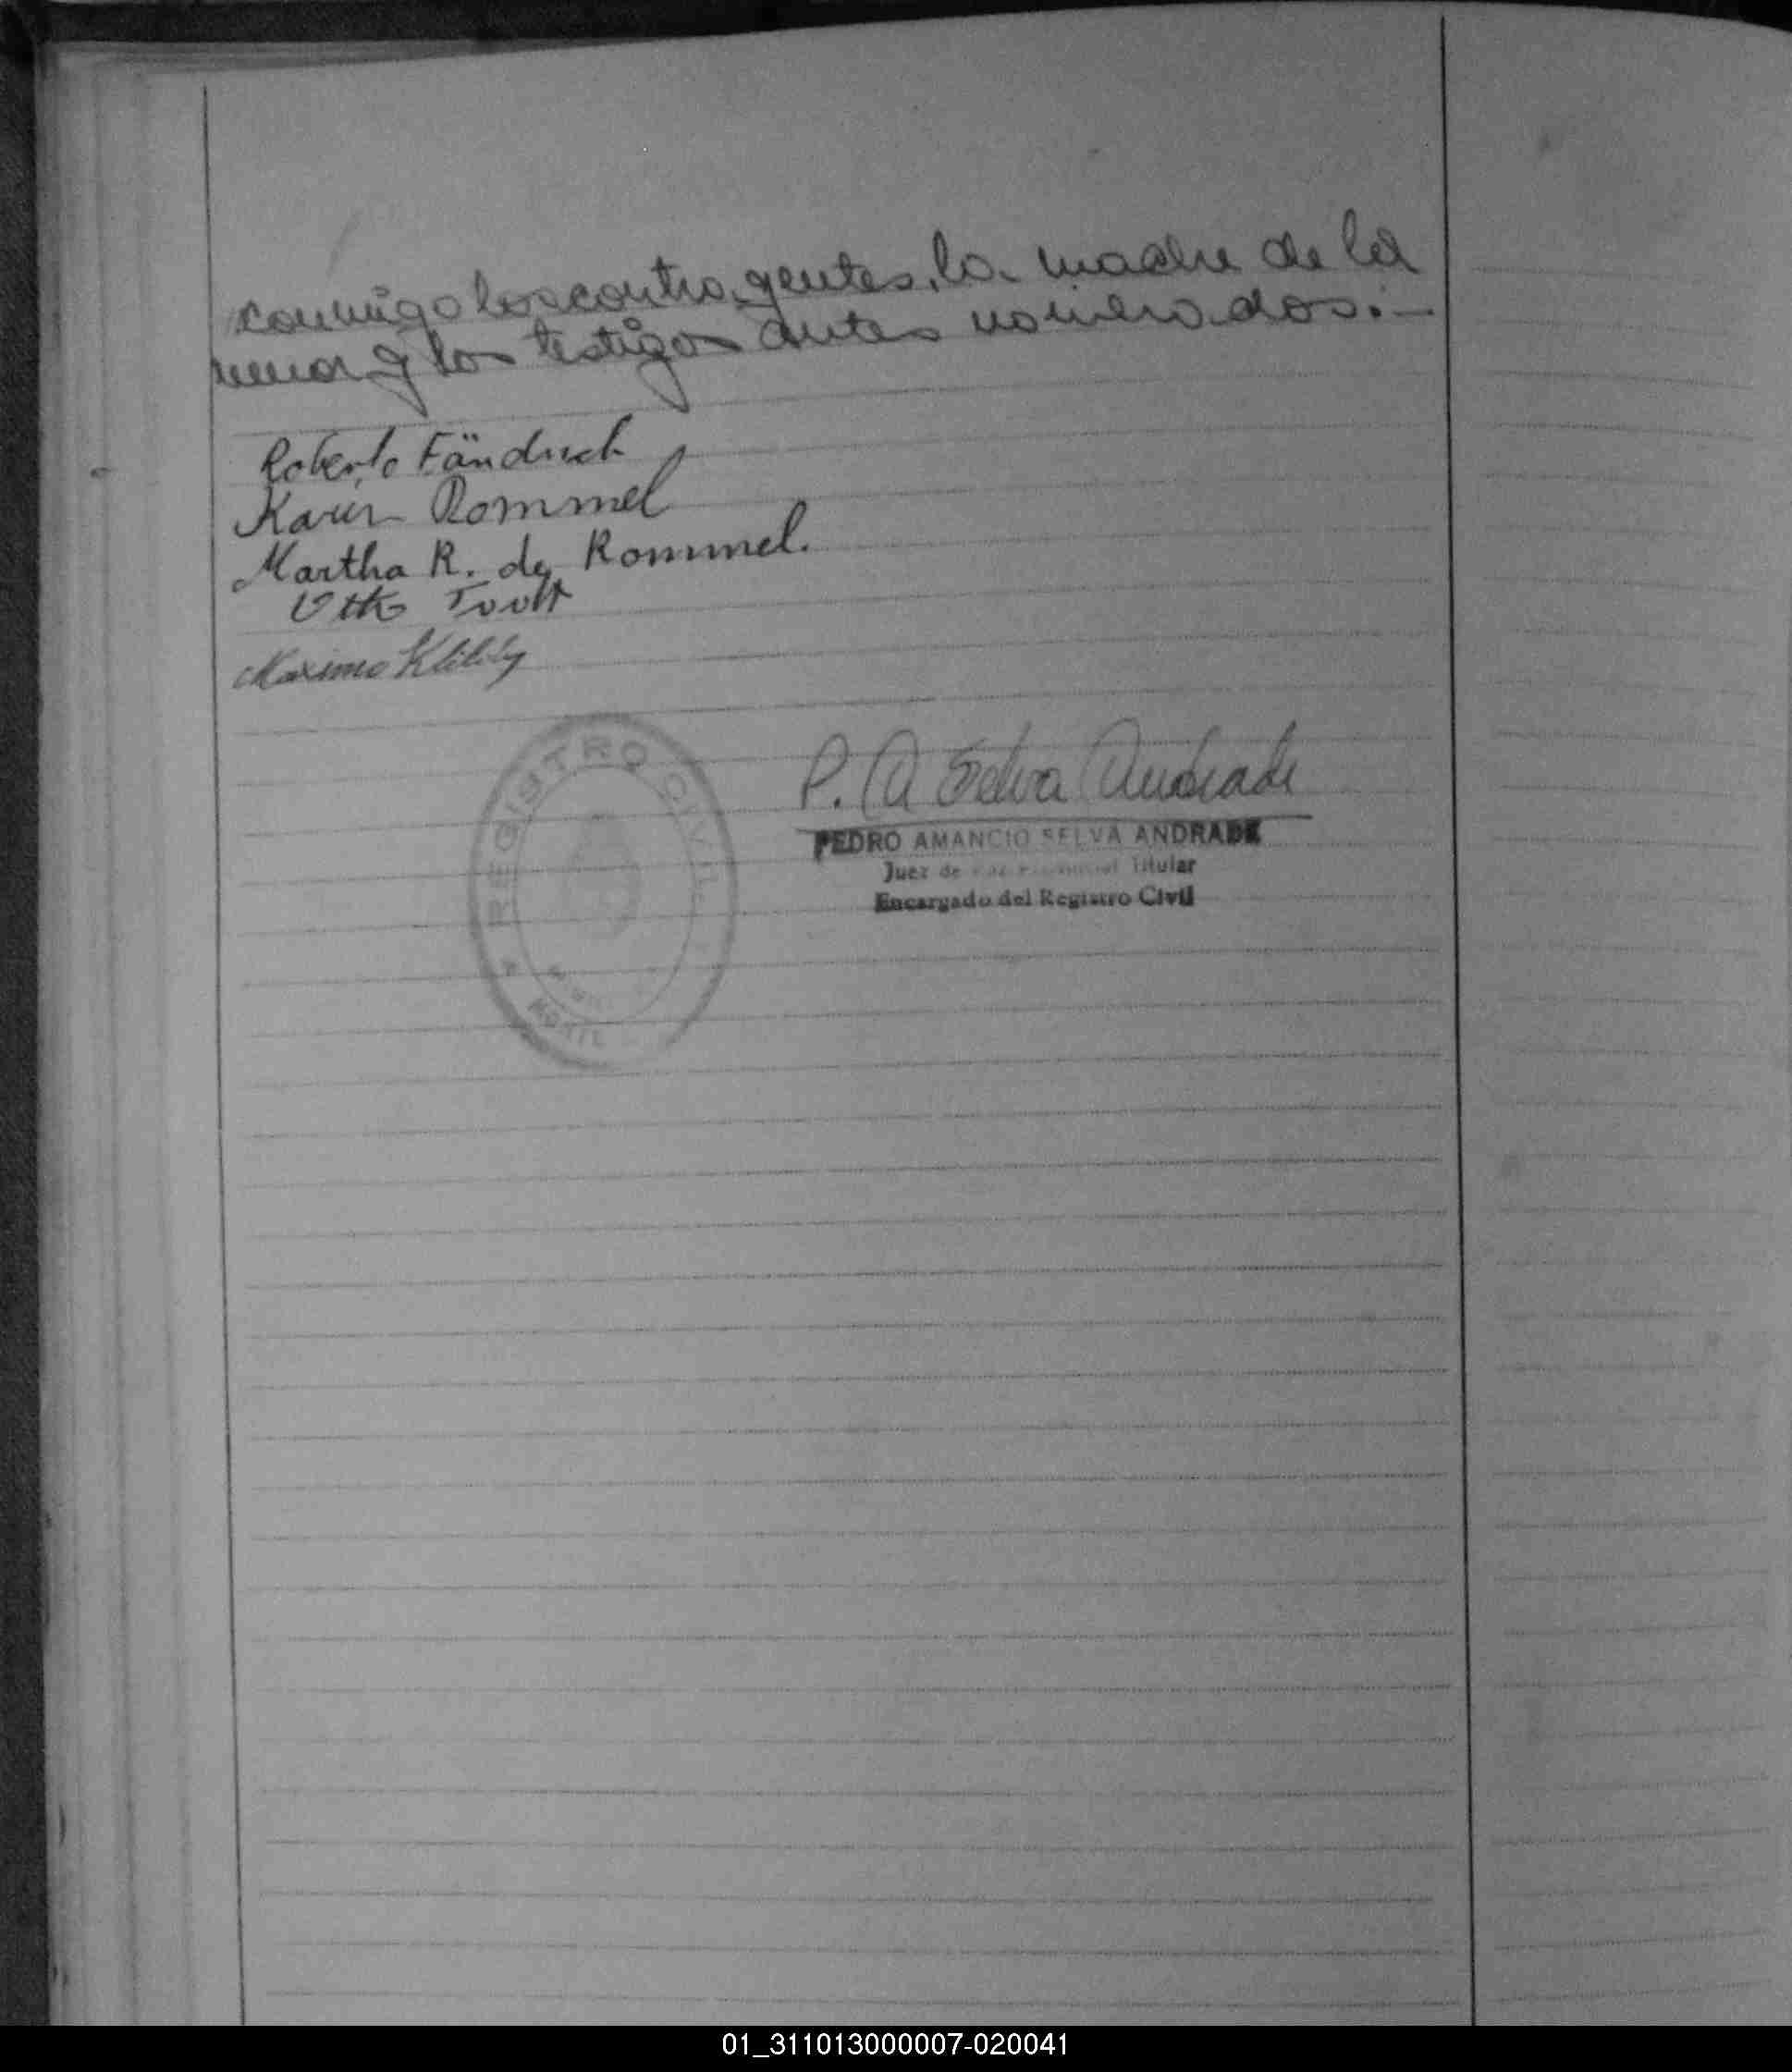 conmigo los contrayentes, la madre de la
menor y los testigos antes nomerados.—
Roberto Fändrich
Karin Rommel
Martha R. de Rommel.
Otto
Maximo
REGISTRO CIVIL
P. A Selva Andrade
PEDRO AMANCIO SELVA ANDRADE
Juez de Titular
Encargado del Registro Civil
01_311013000007-020041